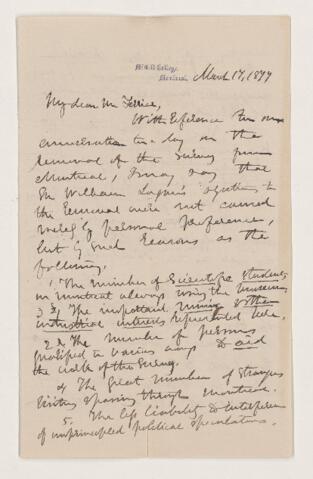 McGill College,
Montreal.
March 17, 1877
My dear Mr Ferrier,
With reference to our
conversation to-day on the
removal of the Survey from
Montreal, I may say that
Sir William Logan's objections to
the removal were not caused
merely by personal preference,
but by such reasons as the
following,
1. The number of Scientific Students
in Montreal always using the Museum
3 The important mining & other
industrial interests represented here.
2 The number of persons
qualified in various ways to aid
the work of the Survey.
4 The great number of strangers
visiting & passing through Montreal.
5. The less liability to interference
of unprincipled political speculators.